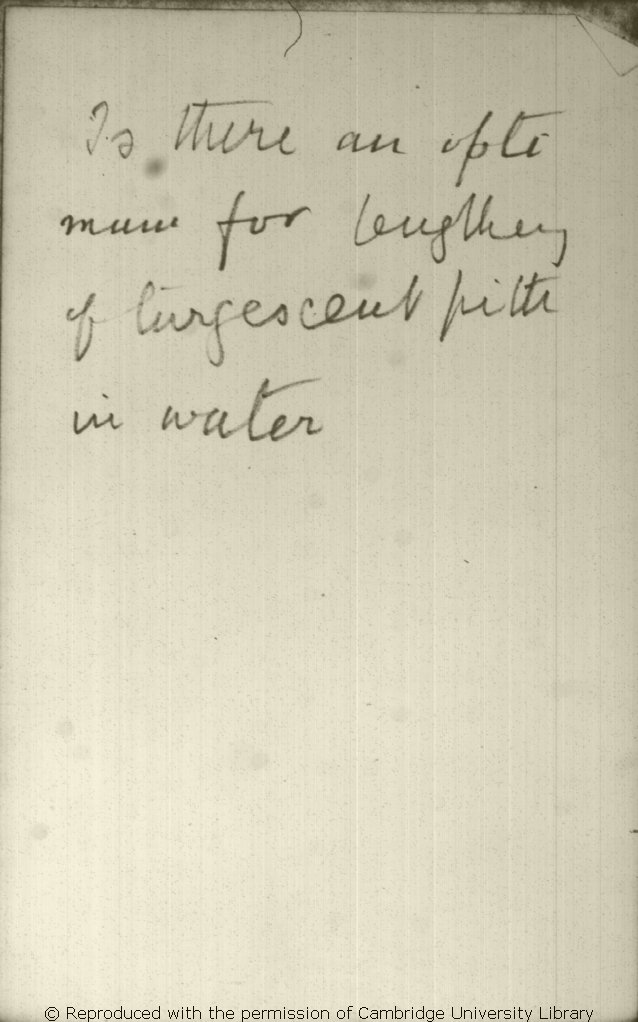 Is there an opti
mum for lengtheng
of turgescent pith
in water
© Reproduced with the permission of Cambridge University Library